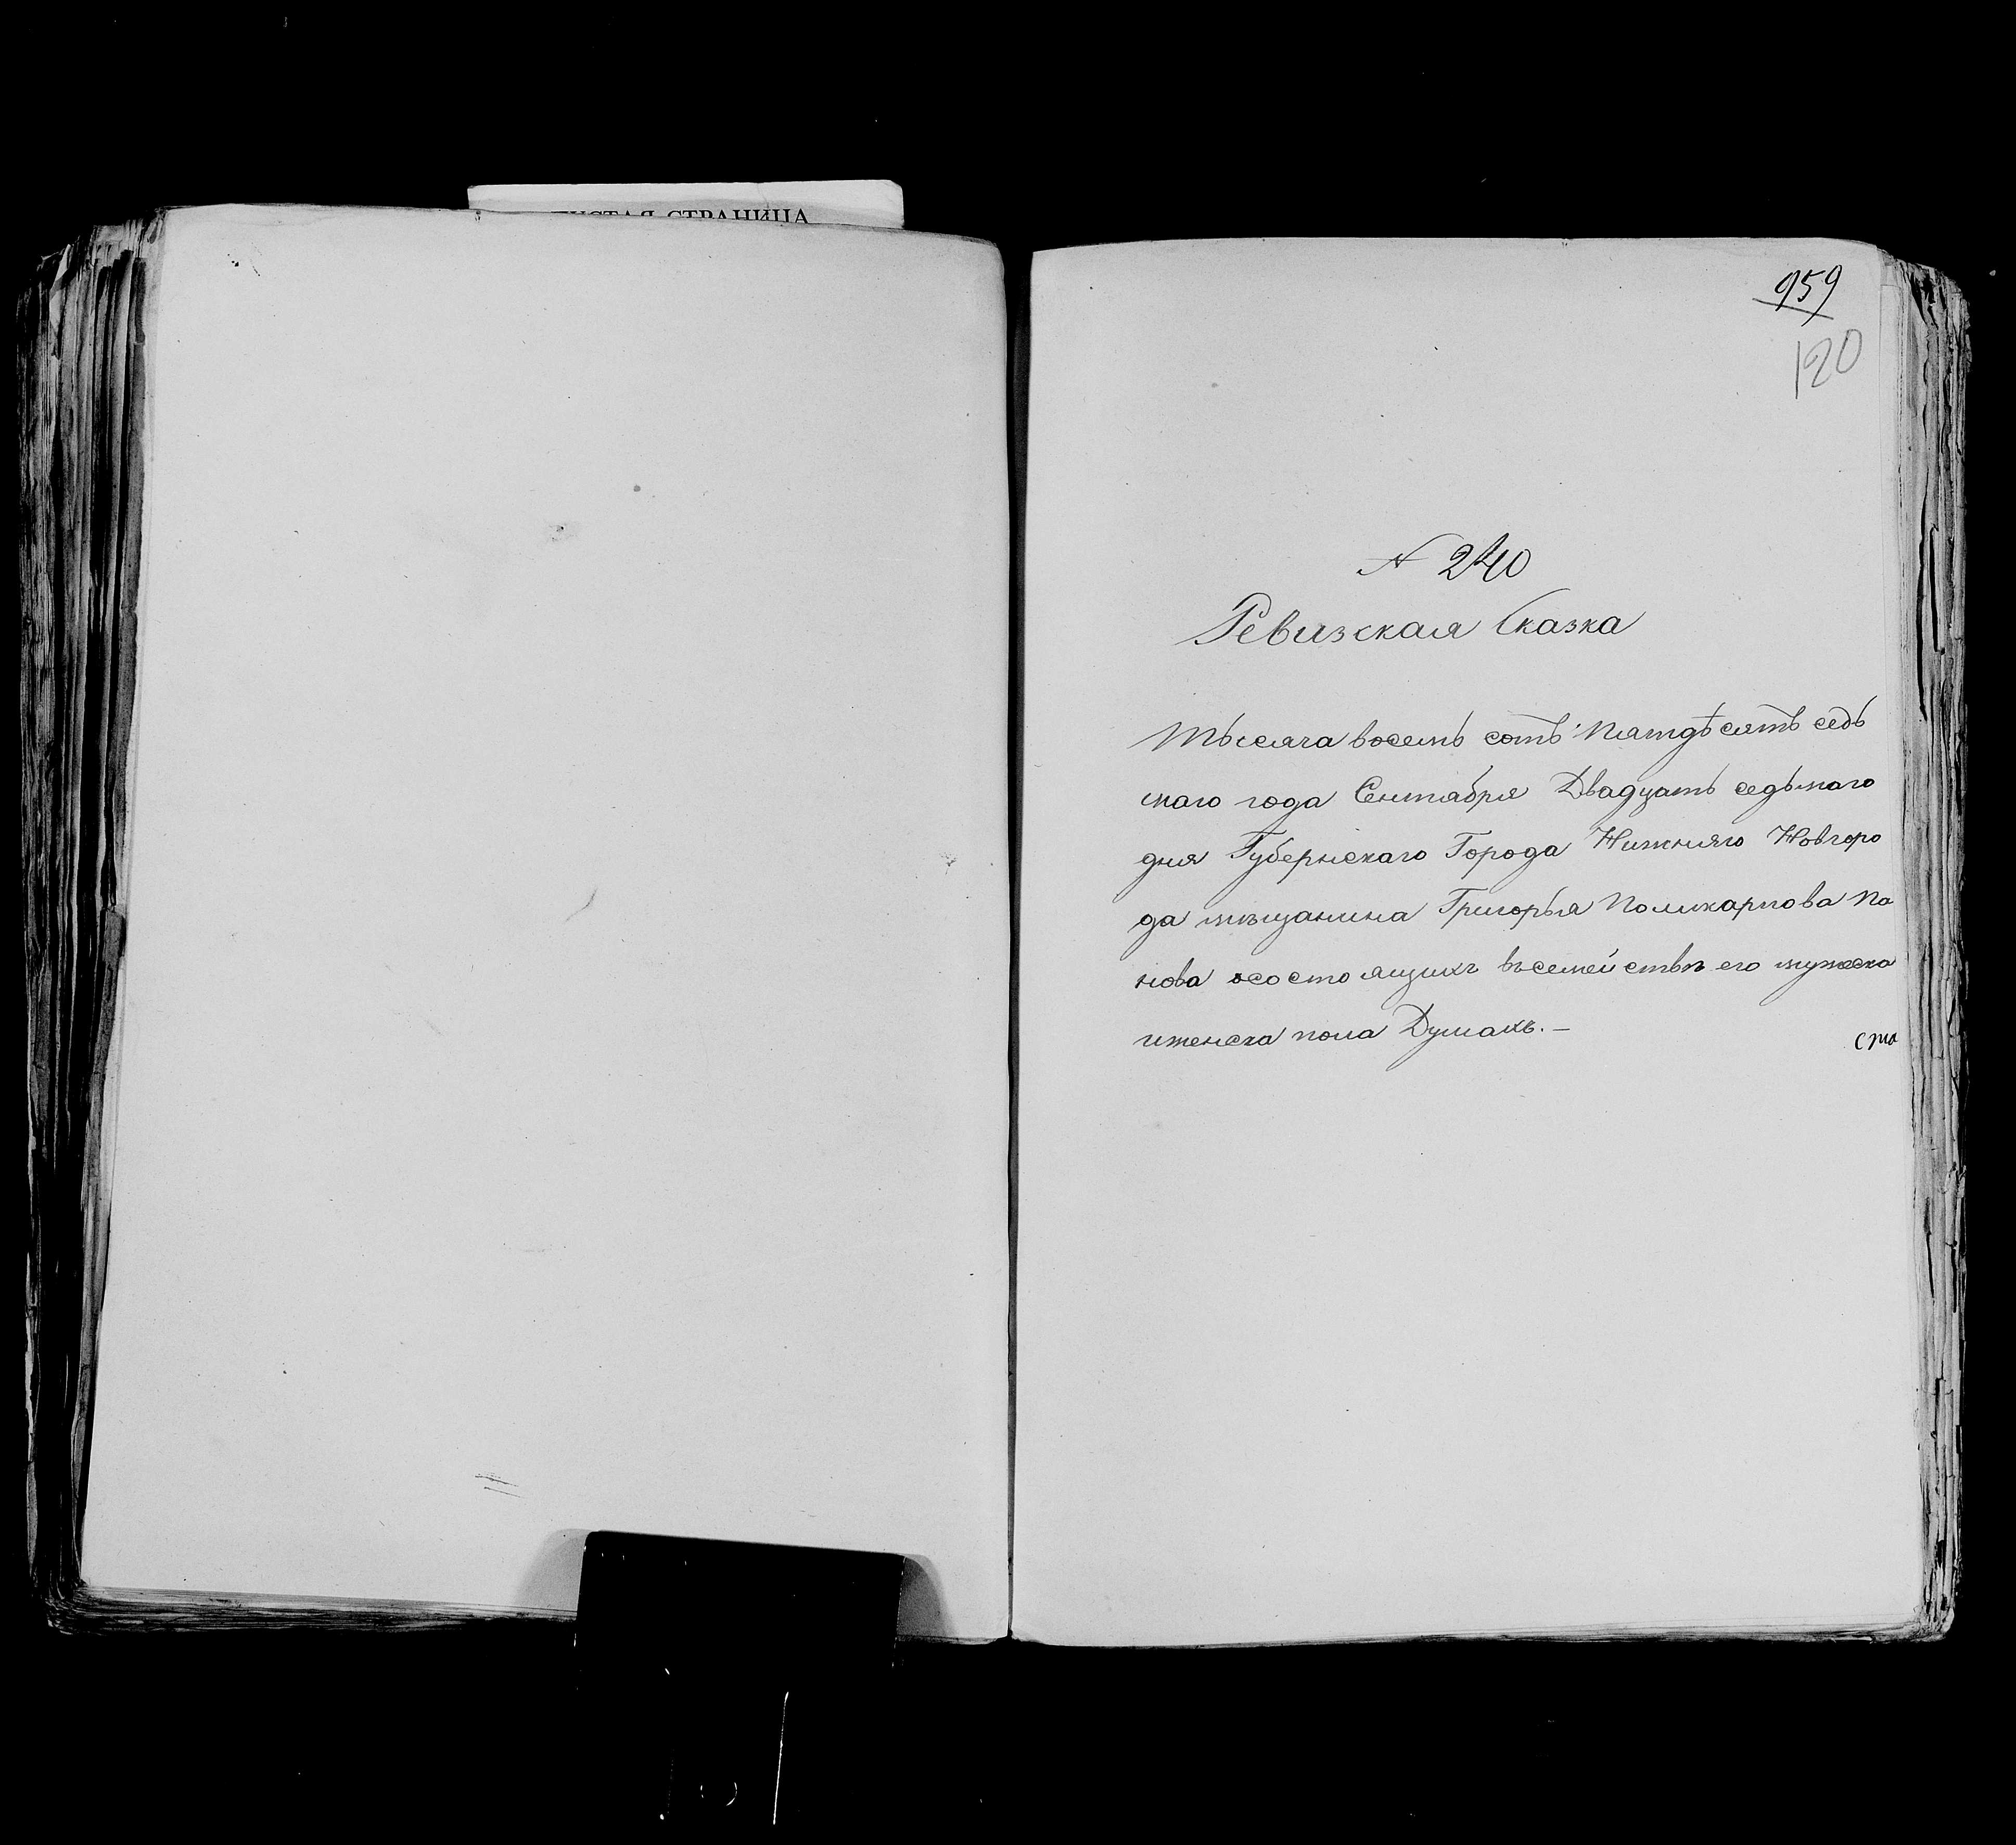 СТРАНИЦА
959
120
№ 240
Ревизская Сказка
Тысяча восемь сотъ Пятдѣсятъ седь
маго года Сентября Двадцать седьмаго
дня Губернскаго Города Нижняго Новгоро
да мѣщанина Григорья Поликарпова По
нова осостоящихъ въсемействѣ его мужеска
иженска пола Душахъ.—
ста